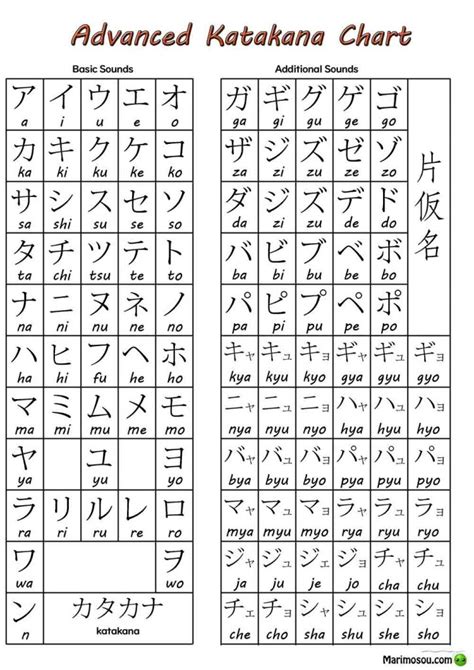 Advanced Katakana Chart
Basic Sounds
ア イ ウ エ オ
a i u e o
カ キ ク ケ コ
ka ki ku ke ko
サ シ ス セ ソ
sa shi su se so
タ チ ツ テ ト
ta chi tsu te to
ナ ニ ヌ ネ ノ
na ni nu ne no
ハ ヒ フ ヘ ホ
ha hi fu he ho
マ ミ ム メ モ
ma mi mu me mo
ヤ ユ ヨ
ya yu yo
ラ リ ル レ ロ
ra ri ru re ro
ワ ヲ
wa wo
ン カタカナ
n katakana
Additional Sounds
ガ ギ グ ゲ ゴ
ga gi gu ge go
ザ ジ ズ ゼ ゾ
za zi zu ze zo
ダ ジ ズ デ ド
da zi zu de do
バ ビ ブ ベ ボ
ba bi bu be bo
パ ピ プ ペ ポ
pa pi pu pe po
片仮名
キャ キュ キョ ギャ ギュ ギョ
kya kyu kyo gya gyu gyo
ニャ ニュ ニョ ヒャ ヒュ ヒョ
nya nyu nyo hya hyu hyo
ビャ ビュ ビョ ピャ ピュ ピョ
bya byu byo pya pyu pyo
マャ マュ マョ ラャ ラュ ラョ
mya myu myo rya ryu ryo
ジャ ジュ ジェ ジョ チャ チュ
ja ju je jo cha chu
チェ チョ シャ シュ シェ ショ
che cho sha shu she sho
Marimosou.com